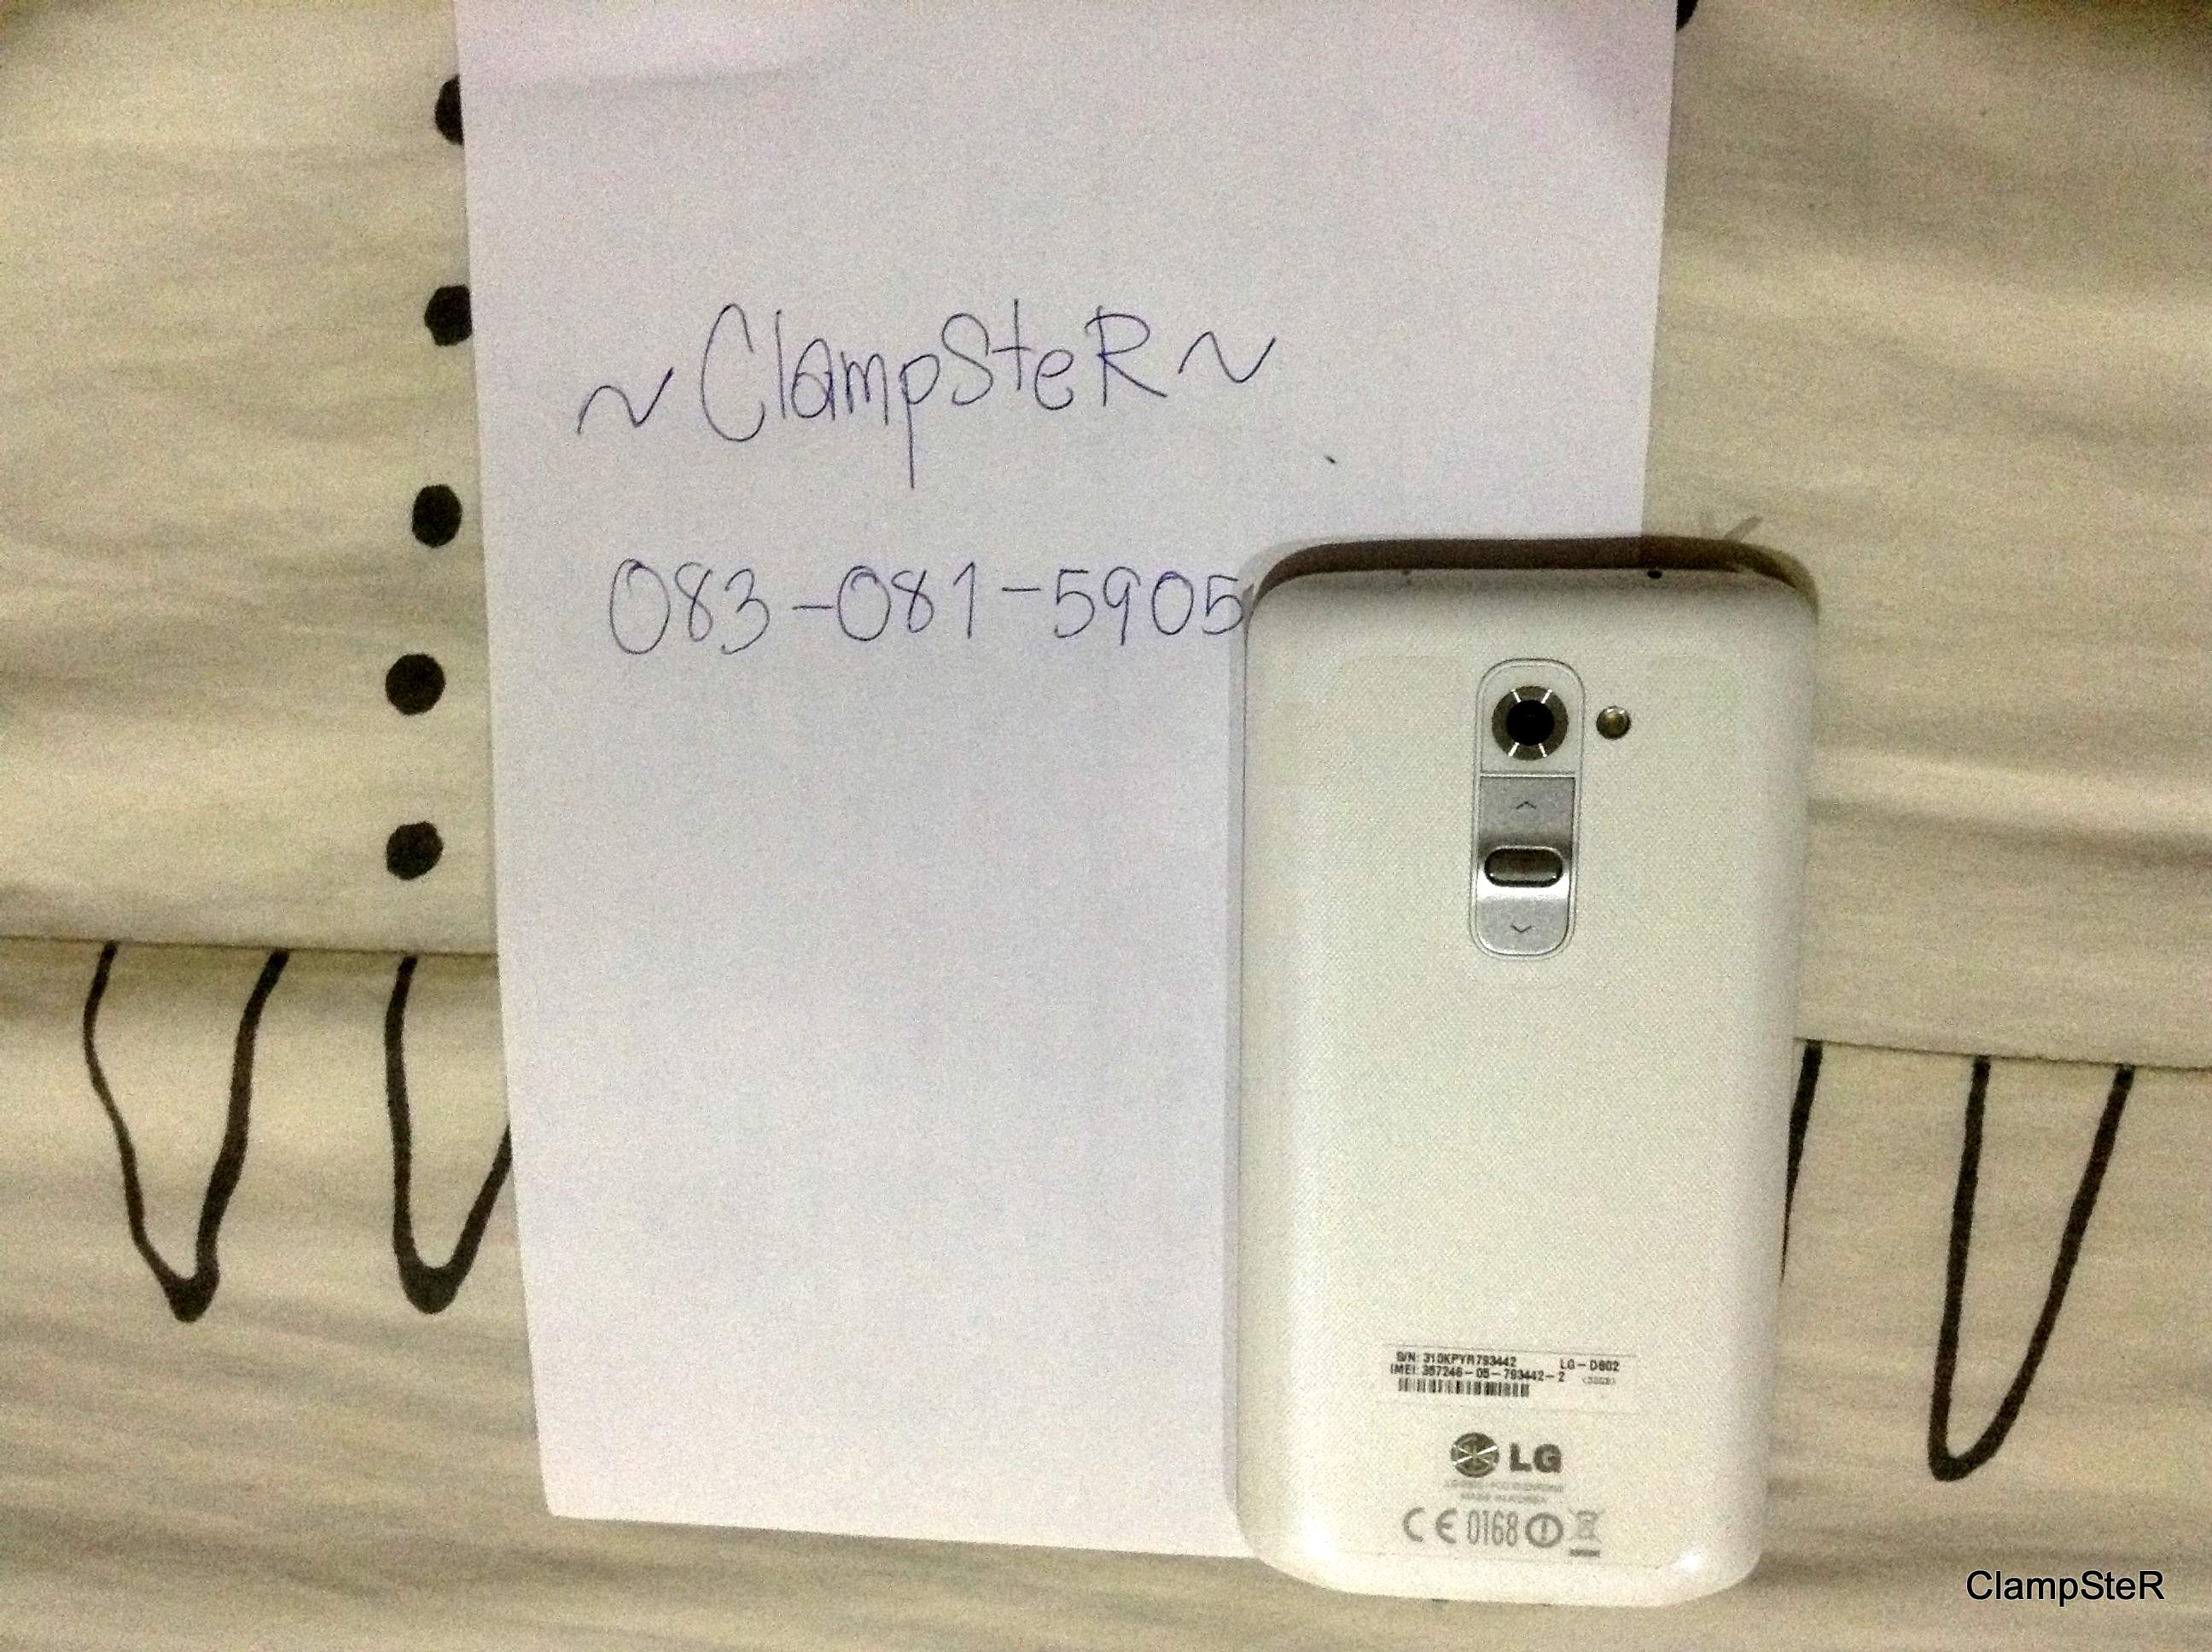 ~ClampSteR~
083-081-5905
S/N: 310KPYR793442 LG-D802
IMEI: 357246-05-793442-2 (32GB)
LG
MADE IN KOREA
CE0168
ClampSteR